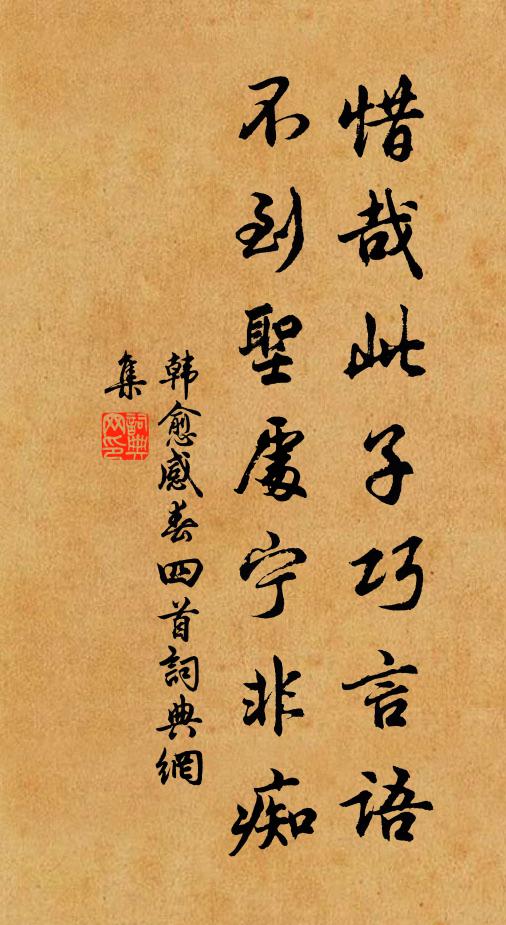 惜哉此子巧言語
不到聖處宁非痴
韩愈感春四首詞典網
集
詞典網印